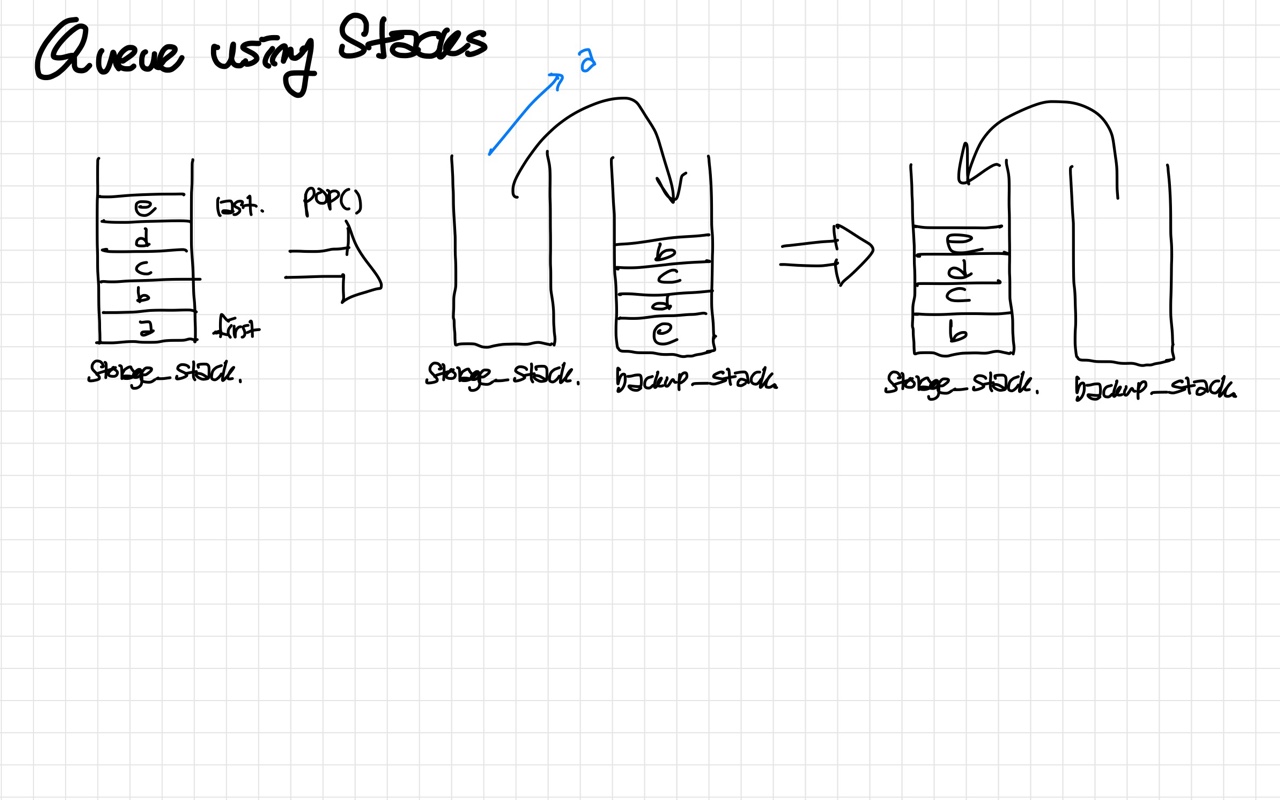 Queue using Stacks
a
e last.
d
c
b
a first
storage_stack.
pop()
b
c
d
e
storage_stack. backup_stack.
e
d
c
b
storage_stack. backup_stack.